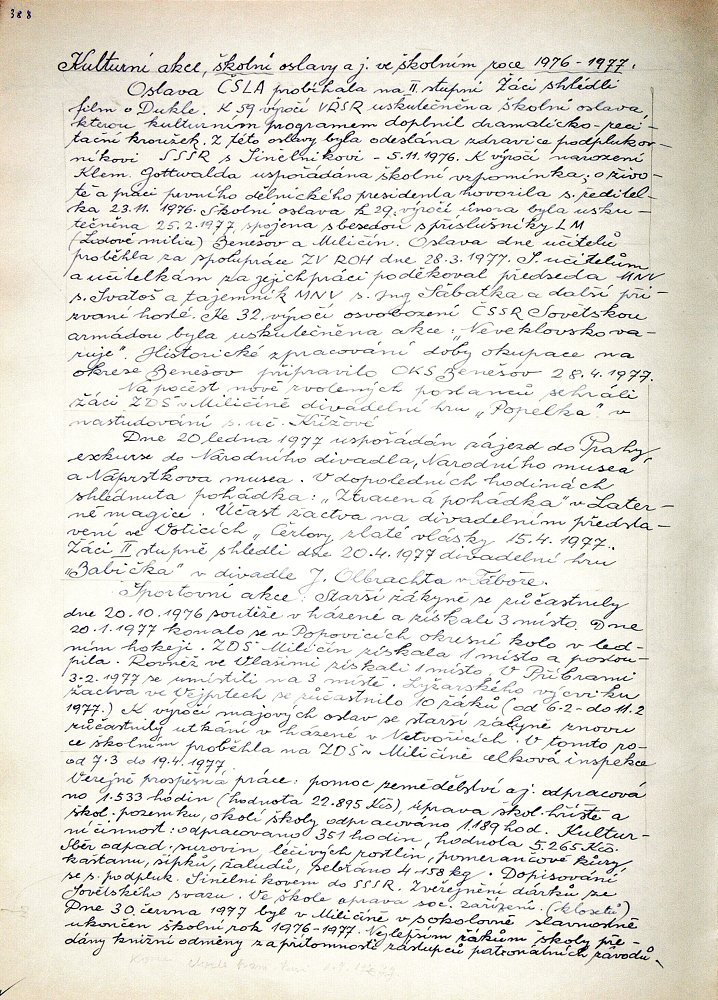 388
Kulturní akce, školní oslavy a j. ve školním roce 1976-1977.
Oslava ČSLA probíhala na II. stupni Žáci shlédli
film o Dukle. K 59 výročí VŘSR uskutečněna školní oslava,
kterou kulturním programem doplnil dramaticko-reci-
tační kroužek. Z této oslavy byla odeslána zdravice podplukov-
níkovi SSSR s Sinělnikovi - 5.11.1976. K výročí narození
Klem. Gottwalda uspořádána školní vzpomínka; o živo-
tě a práci prvního dělnického presidenta hovořila s. ředitel-
ka 23.11.1976. Školní oslava k 29. výročí února byla usku-
tečněna 25.2.1977, spojena s besedou s příslušníky LM
(Lidové milice) Benešov a Miličín. Oslava dne učitelů
proběhla za spolupráce ZV ROH dne 28.3.1977. S učitelům
a učitelkám za jejich práci poděkoval předseda MNV
s. Svatoš a tajemník MNV s. Ing Sábatka a další při-
zvaní hosté. Ke 32. výročí osvobození ČSSR Sovětskou
armádou byla uskutečněna akce: „Neveklovsko va-
ruje". Historické zpracování doby okupace na
okrese Benešov připravilo OKS Benešov 28.4.1977.
Na počest nově zvolených poslanců sehráli
žáci ZDŠ v Miličíně divadelní hru „Popelka" v
nastudování s. uč. Křížové
Dne 20 ledna 1977 uspořádán zájezd do Prahy,
exkurse do Národního divadla, Národního musea
a Náprstkova musea. V dopoledních hodinách
shlédnuta pohádka: „Ztracená pohádka" v Later-
ně magice. Účast žactva na divadelním předsta-
vení ve Voticích „Čertovy zlaté vlásky 15.4.1977.
Žáci II stupně shlédli dne 20.4.1977 divadelní hru
„Babička" v divadle J. Olbrachta v Táboře.
Sportovní akce: Starší žákyně se zúčastnily
dne 20.10.1976 soutěže v házené a získali 3 místo. Dne
20.1.1977 konalo se v Popovicích okresní kolo v led-
ním hokeji. ZDŠ Miličín získala 1 místo a postou-
pila. Rovněž ve Vlašimi získali 1 místo. V Příbrami
3.2.1977 se umístili na 3 místě. Lyžařského výcviku
žactva ve Vejprtech se zúčastnilo 10 žáků (od 6.2 - do 11.2
1977.) K výročí májových oslav se starší žákyně znovu
zúčastnily utkání v házené v Netvořicích. V tomto ro-
ce školním proběhla na ZDŠ v Miličíně celková inspekce
od 7.3 do 19.4.1977.
Veřejně prospěšná práce: pomoc zemědělství a j. odpracová
no 1.533 hodin (hodnota 22.895 Kčs), úprava škol. hřiště a
škol. pozemku, okolí školy odpracováno 1.189 hod. Kultur-
ní činnost: odpracováno 351 hodin, hodnota 5.265 Kčs.
Sběr odpad. surovin, léčivých rostlin, pomerančové kůry
kaštanu, šípků, žaludů, sebráno 4 158 kg. Dopisování
se s. podpluk. Sinělnikovem do SSSR. Zveřejnění dárků ze
Sovětského svazu. Ve škole oprava soc. zařízení. (klosetů)
Dne 30. června 1977 byl v Miličíně v sokolovně slavnostně
ukončen školní rok 1976-1977. Nejlepším žákům školy pře-
dány knižní odměny za přítomnosti zástupců patronátních závodů.